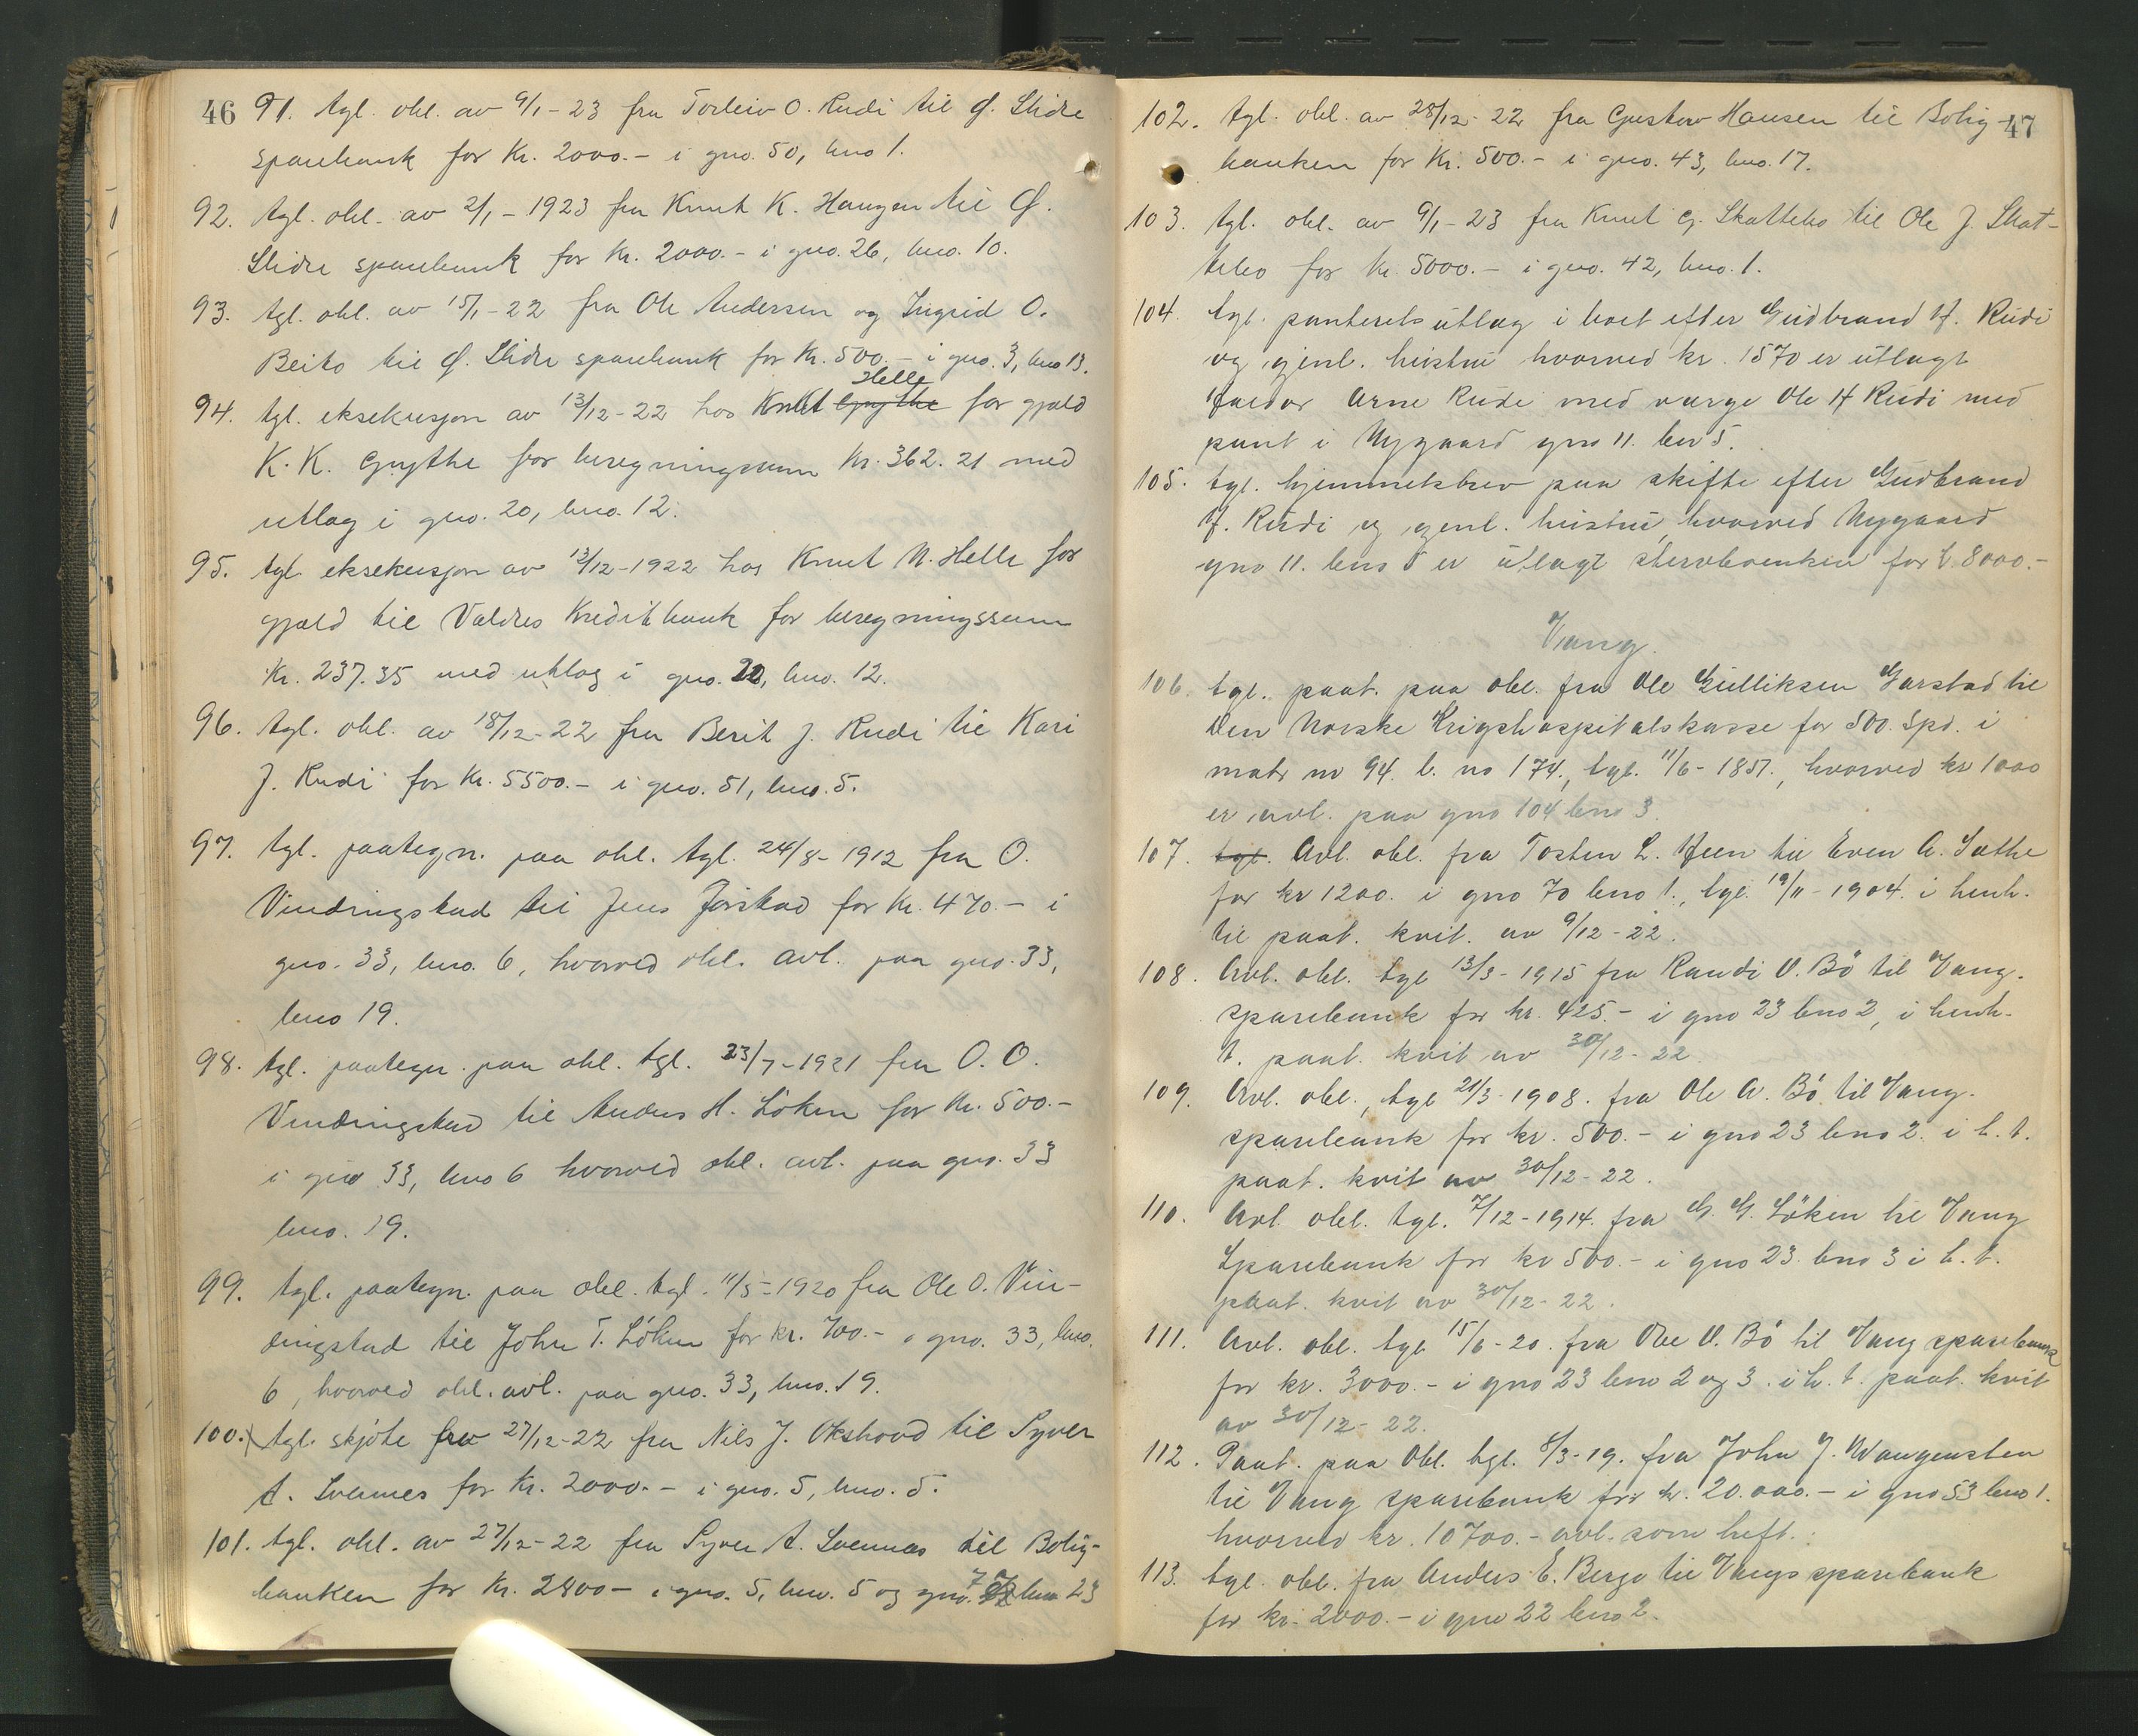 46
91. tgl. obl. av 9/1-23 fra Torleiv O. Rudi til Ø. Slidre
sparebank for Kr. 2000.- i gno. 50, bno 1.
92. tgl. obl. av 2/1-1923 fra Knut K. Haugen til Ø.
Slidre sparebank for Kr. 2000.- i gno. 26, bno. 10.
93. tgl. obl. av 15/1-22 fra Ole Andersen og Ingrid O.
Beito til Ø. Slidre sparebank for Kr. 500.- i gno. 3, bno 13.
94. tgl. eksekusjon av 13/12-22 hos Knut Helle for gjæld
K. K. Grythe for beregningssum Kr. 362.21 med
utlæg i gno. 20, bno. 12.
95. tgl. eksekusjon av 13/12-1922 hos Knut N. Helle for
gjæld til Valdres Kreditbank for beregningssum
Kr. 237.35 med utlæg i gno. 20, bno. 12.
96. tgl. obl. av 18/12-22 fra Berit J. Rudi til Kari
J. Rudi for Kr. 5500.- i gno. 51, bno. 5.
97. tgl. paategn. paa obl. tgl. 24/8-1912 fra O.
Vindingstad til Jens Jørstad for Kr. 470.- i
gno. 33, bno. 6, hvorved obl. avl. paa gno. 33,
bno 19.
98. tgl. paategn. paa obl. tgl. 23/7-1921 fra O. O.
Vindingstad til Anders H. Löken for Kr. 500.-
i gno 33, bno 6 hvorved obl. avl. paa gno. 33
bno. 19.
99. tgl. paategn. paa obl. tgl. 11/5-1920 fra Ole O. Vin-
dingstad til John T. Löken for kr. 700.- i gno. 33, bno.
6, hvorved obl. avl. paa gno. 33, bno. 19.
100. tgl. skjöte fra 27/12-22 fra Nils J. Okshovd til Syver
A. Svennes for Kr. 2000.- i gno. 5, bno. 5.
101. tgl. obl. av 27/12-22 fra Syver A. Svennes til Bolig-
banken for Kr. 2800- i gno. 5, bno. 5 og gno. 77 bno 23
47
102. tgl. obl. av 28/12-22 fra Gustav Hansen til Bolig-
banken for Kr. 500.- i gno. 43, bno. 17.
103. tgl. obl. av 9/1-23 fra Knut G. Skattebo til Ole J. Skat-
tebo for Kr. 5000.- i gno. 42, bno. 1.
104. tgl. panteretsutlæg i boet efter Gudbrand H. Rudi
og gjenl. hustru hvorved kr. 1570 er utlagt
Arne Rudi med værge Ole H Rudi med
pant i Nygaard gno 11. bno 5.
105. tgl. hjemmelsbrev paa skifte efter Gudbrand
H. Rudi og gjenl. hustru, hvorved Nygaard
gno 11. bno 5 er utlagt stervboenken for k. 8000.-
Vang.
106. tgl. paat. paa obl. fra Ole Gulliksen Garstad til
Den Norske Krigshospitalskasse for 500. Spd. i
matr no 94. l. no 174., tgl. 11/6-1857., hvorved kr 1000
er avl. paa gno 104 bno 3.
107. tgl. Avl. obl. fra Tosten L. Heen til Even A. Sæthe
for kr 1200. i gno 70 bno 1., tgl. 19/11-1904. i henh.
til paat. kvit. av 9/12-22.
108. Avl. obl. tgl 13/3-1915 fra Randi O. Bö til Vang.
sparebank for kr. 425.- i gno 23 bno 2, i henh.
t. paat. kvit av 30/12-22.
109. Avl. obl., tgl 21/3-1908. fra Ole A. Bö til Vang.
sparebank for kr. 500.- i gno 23 bno 2. i h. t.
paat. kvit av 30/12-22.
110. Avl. obl. tgl. 7/12-1914. fra G. G. Löken til Vang
Sparebank for kr 500.- i gno 23. bno 3 i h. t.
paat. kvit av 30/12-22.
111. Avl. obl. tgl 15/6-20. fra Ole O. Bö til Vang sparebank
for kr. 3000.- i gno 23 bno 2 og 3. i h. t. paat. kvit
av 30/12-22.
112. Paat. paa Obl. tgl. 8/3-19. fra John J. Wangensten
til Vang sparebank for kr. 20.000.- i gno 53 bno 1.
hvorved kr. 10700.- avl. som heft.
113. tgl. obl. fra Anders E. Berge til Vangs sparebank
for kr. 2000.- i gno 22 bno 2.